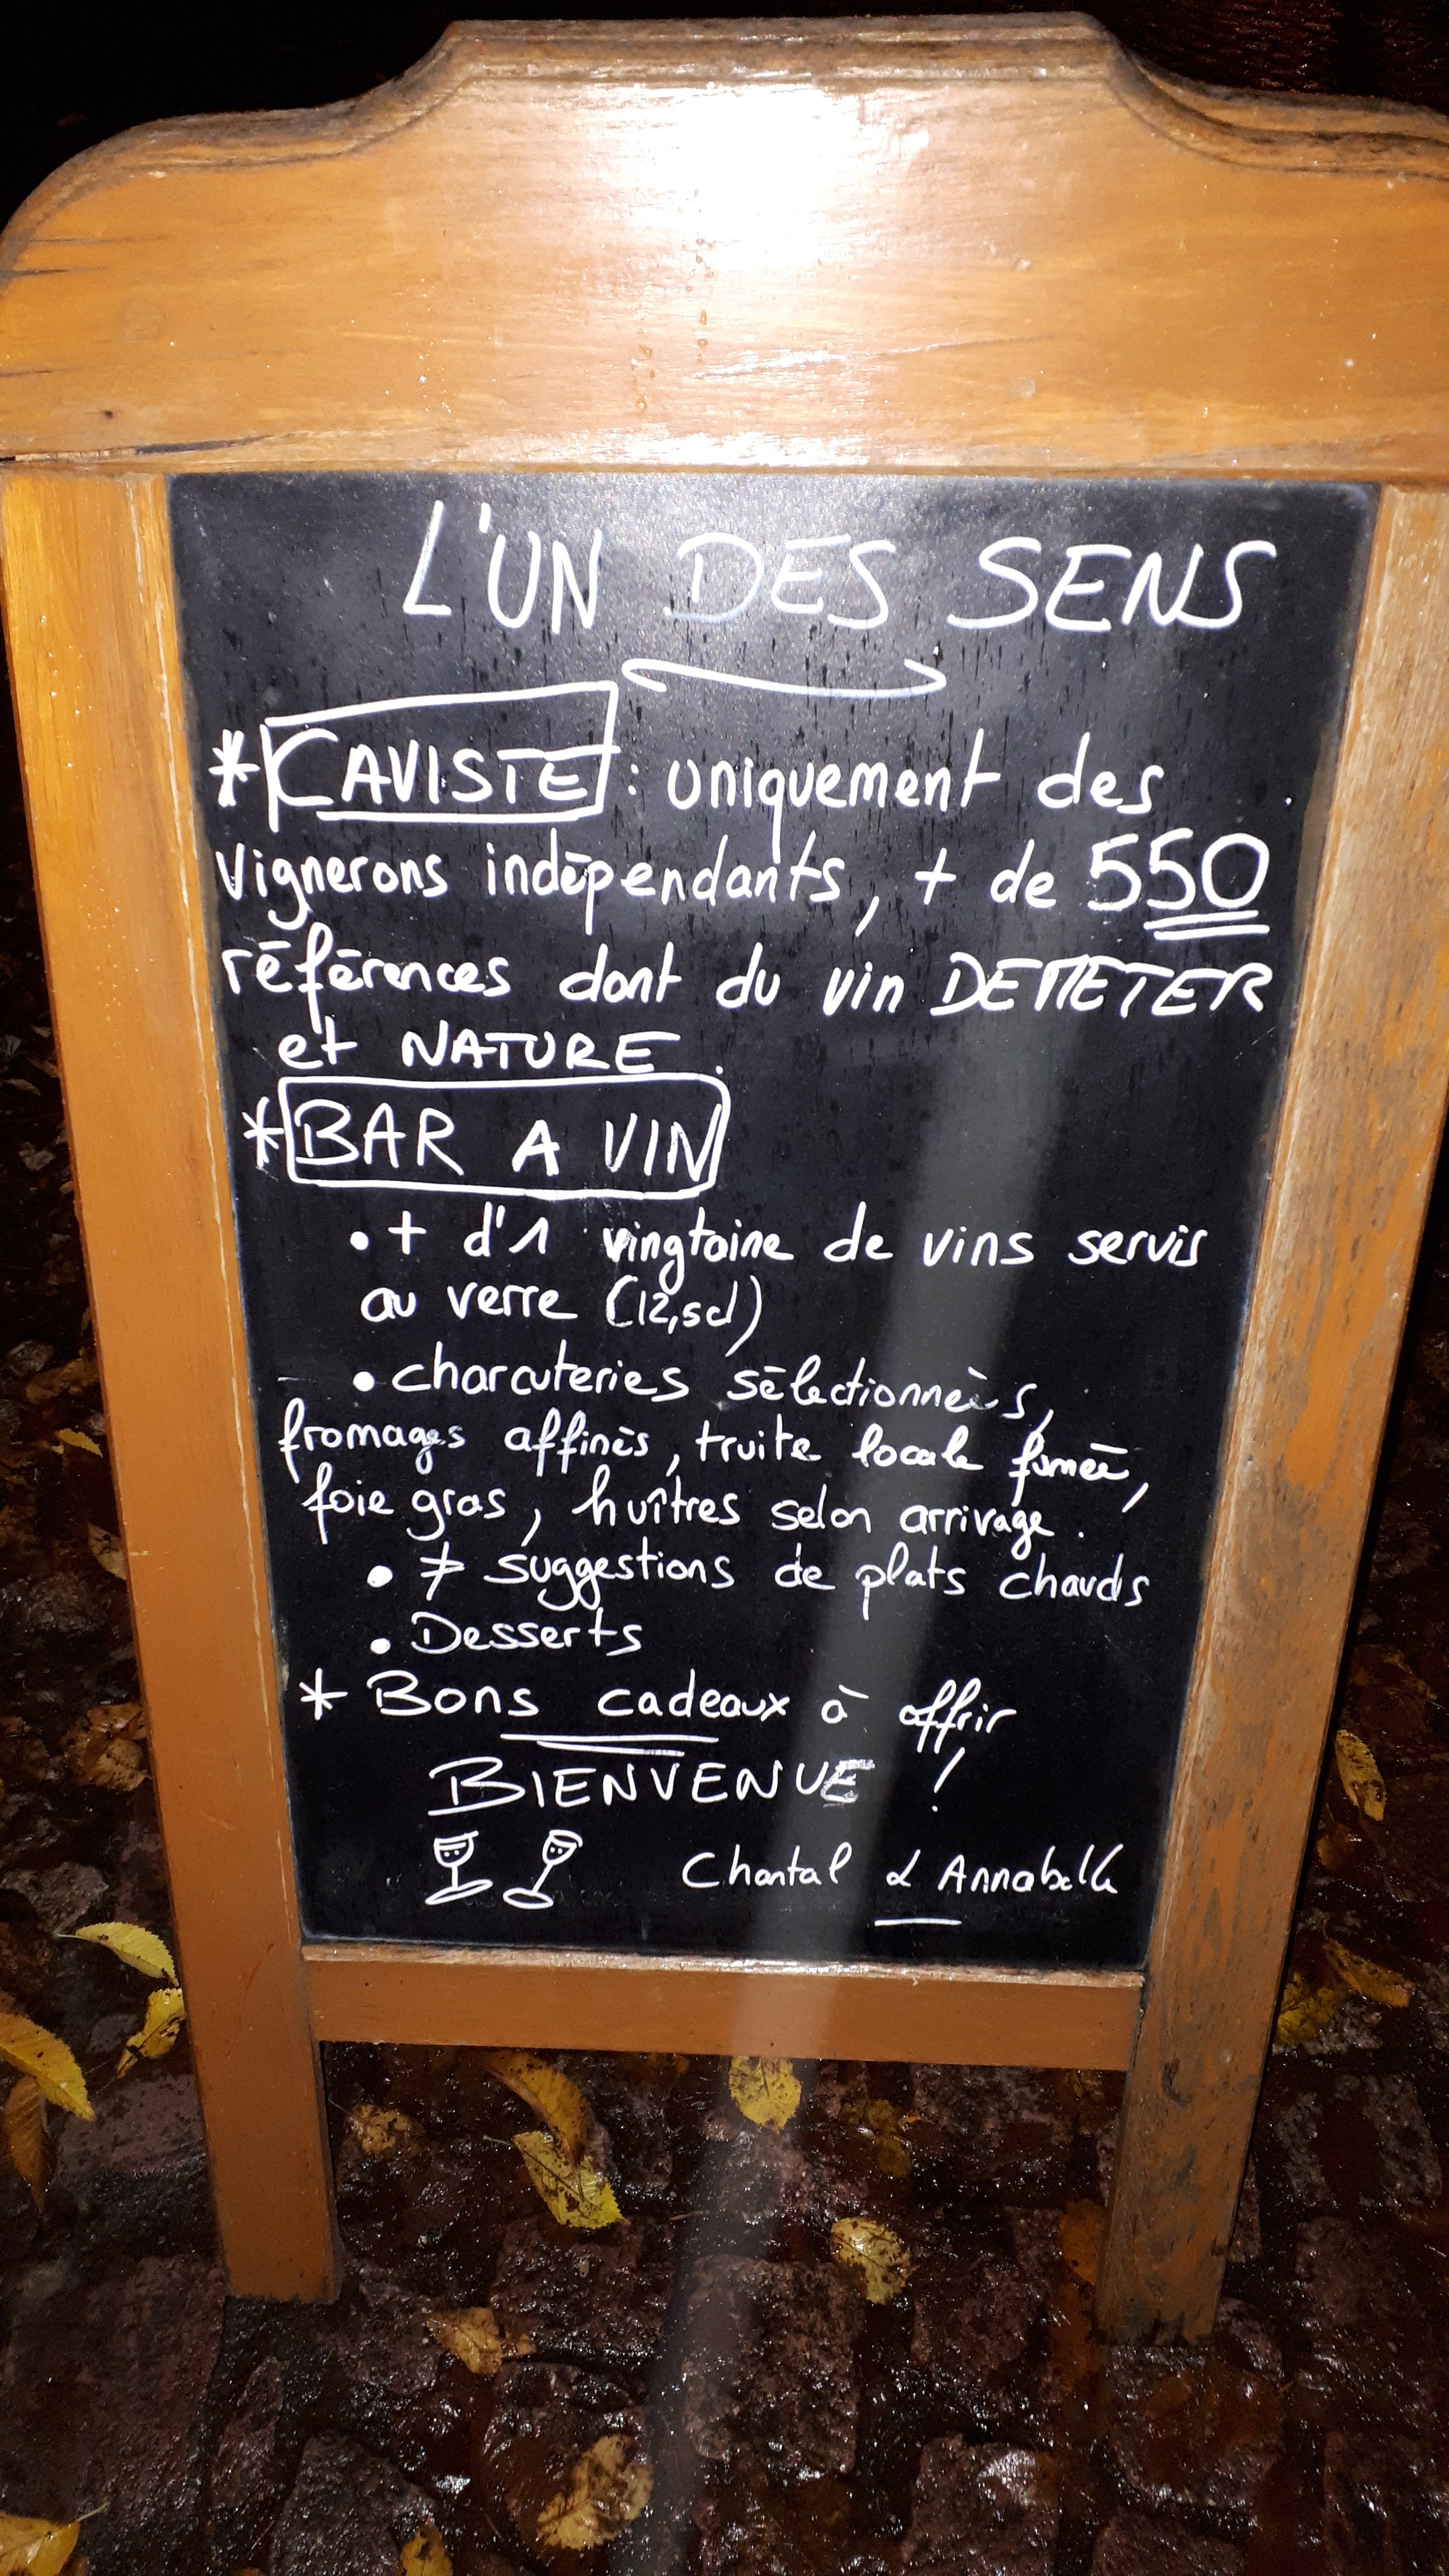 L'UN DES SENS
* CAVISTE : uniquement des
vignerons indépendants, + de 550
références dont du vin DEMETER
et NATURE.
* BAR A VIN
• + d'1 vingtaine de vins servis
au verre (12,5cl)
• charcuteries sélectionnées,
fromages affinés, truite locale fumée,
foie gras, huîtres selon arrivage.
• ≠ suggestions de plats chauds
• Desserts
* Bons cadeaux à offrir
BIENVENUE !
Chantal & Annabelle